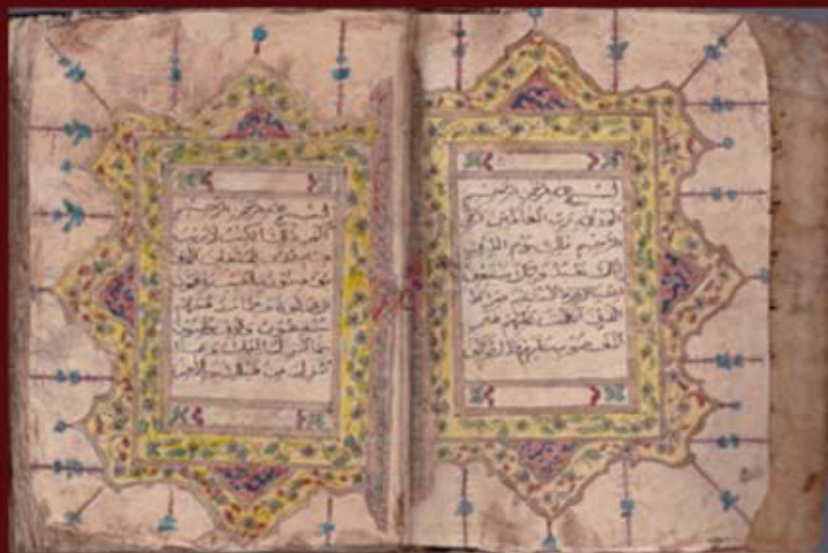 بسم الله الرحمن الرحيم
الحمد لله رب العالمين
الرحيم ملك يوم الدين
إياك نعبد وإياك نستعين
اهدنا الصراط المستقيم صراط
الذين أنعمت عليهم غير
المغضوب عليهم ولا الضالين
بسم الله الرحمن الرحيم
الم ذلك الكتب لا ريب
فيه هدى للمتقين الذين
يؤمنون بالغيب ويقيمون
الصلوة ومما رزقنهم
ينفقون والذين يؤمنون
بما أنزل إليك وما
أنزل من قبلك